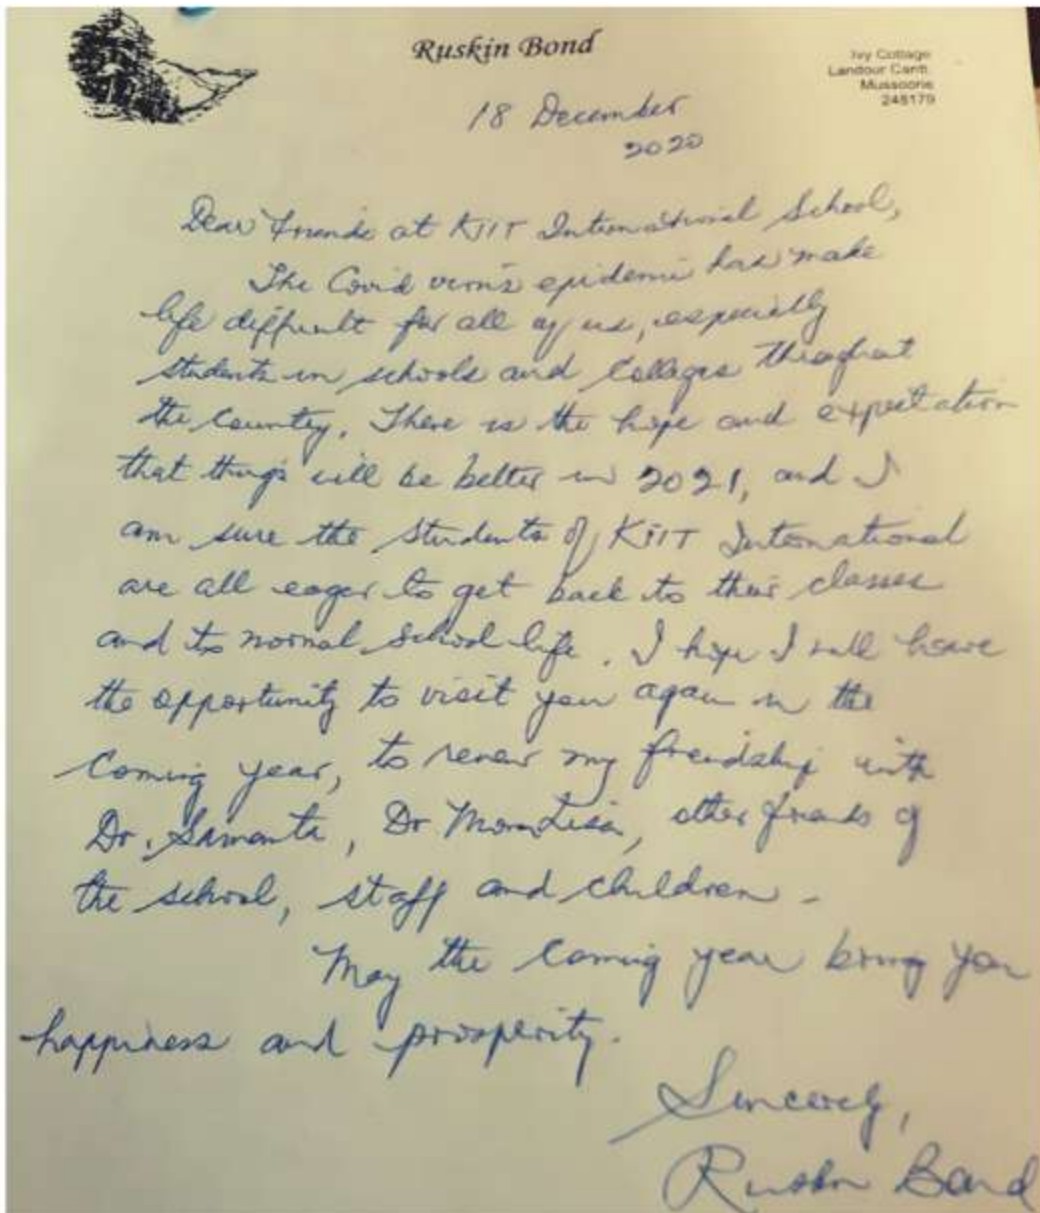 Ruskin Bond
Ivy Cottage
Landour Cantt.
Mussoorie
248179
18 December
2020
Dear friends at KIIT International School,
The Covid virus epidemic has make
life difficult for all of us, especially
students in schools and colleges throughout
the country. There is the hope and expectation
that things will be better in 2021, and I
am sure the students of KIIT International
are all eager to get back to their classes
and to normal school life. I hope I will have
the opportunity to visit you again in the
coming year, to renew my friendship with
Dr. Samanta, Dr Mona Lisa, other friends of
the school, staff and children.
May the coming year bring you
happiness and prosperity.
Sincerely,
Ruskin Bond